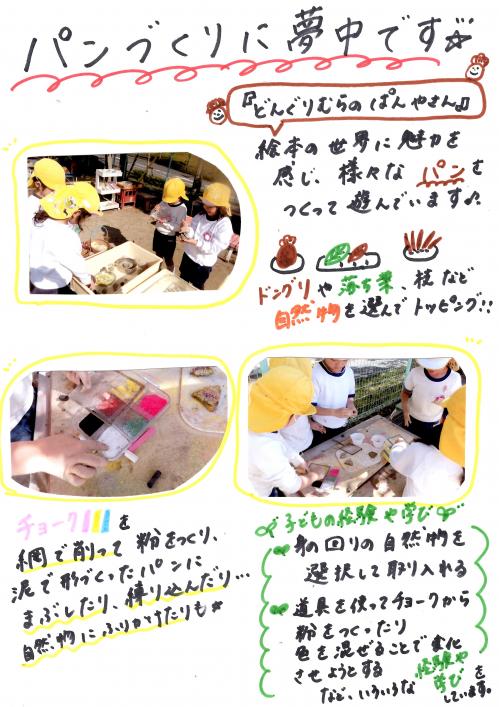 パンづくりに夢中です☆
『どんぐりむらのぱんやさん』
絵本の世界に魅力を
感じ、様々なパンを
つくって遊んでいます♪
ドングリや落ち葉、枝など
自然物を選んでトッピング!!
チョークを
網で削って粉をつくり、
泥で形づくったパンに
まぶしたり、練り込んだり…
自然物にふりかけたりも☆
子どもの経験や学び
身の回りの自然物を
選択して取り入れる
道具を使ってチョークから
粉をつくったり
色を混ぜることで変化
させようとする
など、いろいろな経験や学びを
しています。